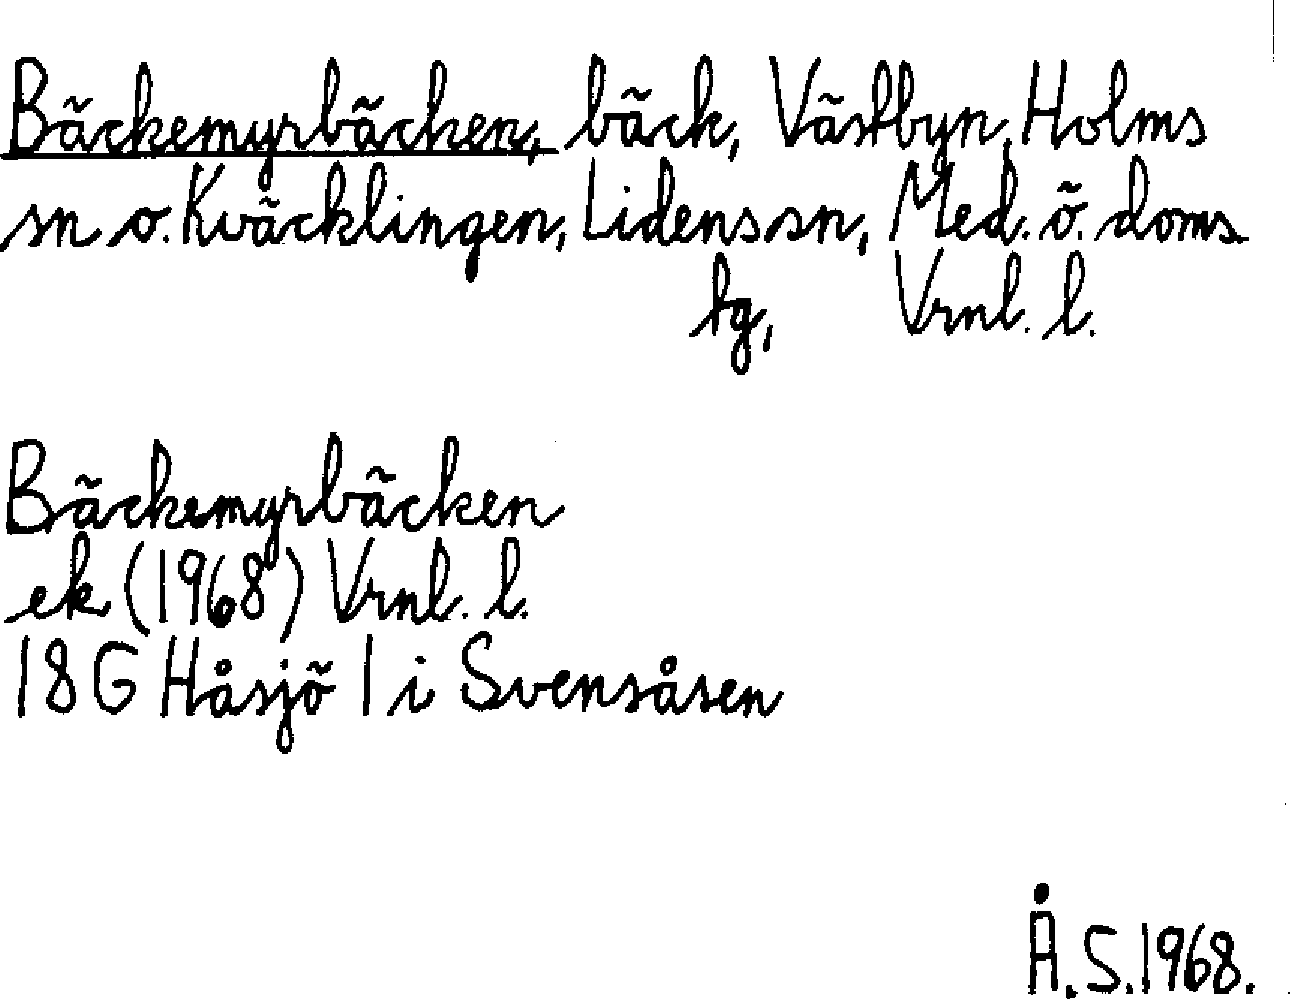 Bäckemyrbäcken, bäck, Västbyn, Holms
sn o. Kväcklingen, Lidens sn, Med. ö. doms
tg, Vrnl. l.
Bäckemyrbäcken
ek (1968) Vrnl. l.
18G Håsjö 1 i Svensåsen
Å.S.1968.